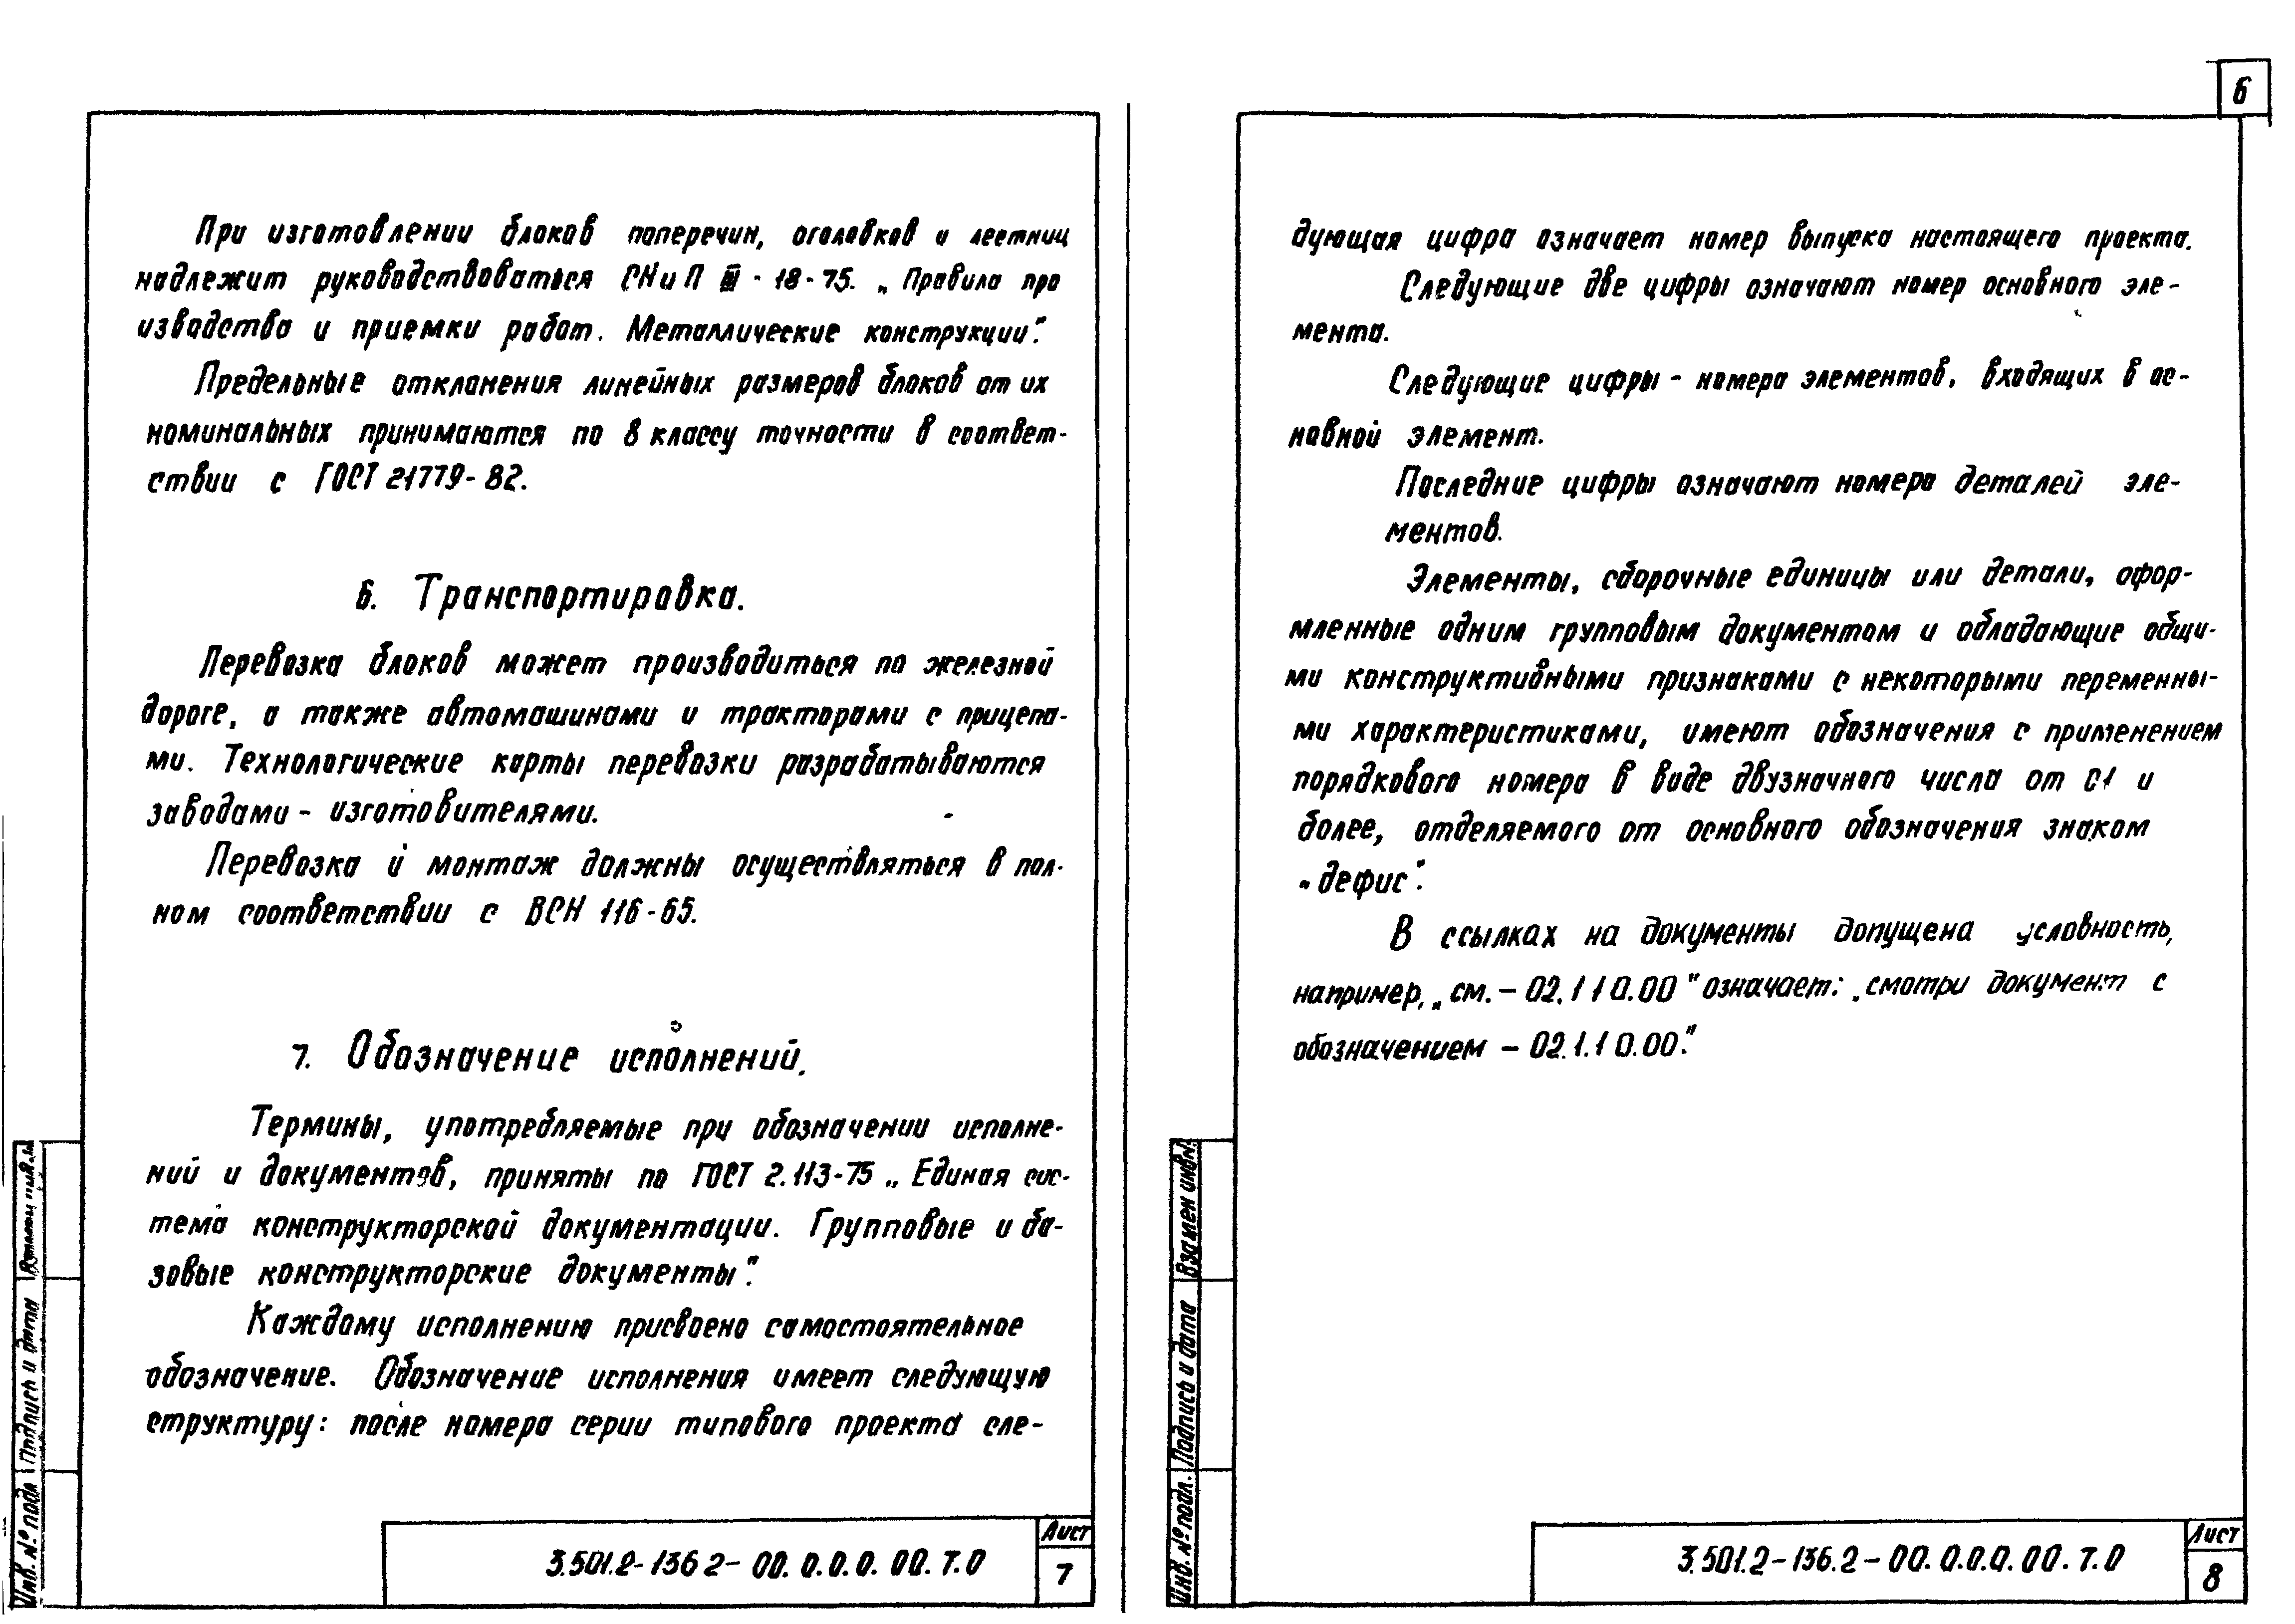 При изготовлении блоков поперечин, оголовков и лестниц
надлежит руководствоваться СНиП III - 18 - 75. „Правила про
изводства и приемки работ. Металлические конструкции".
Предельные отклонения линейных размеров блоков от их
номинальных принимаются по 8 классу точности в соответ-
ствии с ГОСТ 21779-82.
6. Транспортировка.
Перевозка блоков может производиться по железной
дороге, а также автомашинами и тракторами с прицепа-
ми. Технологические карты перевозки разрабатываются
заводами - изготовителями.
Перевозка и монтаж должны осуществляться в пол-
ном соответствии с ВСН 116-65.
7. Обозначение исполнений.
Термины, употребляемые при обозначении исполне-
ний и документов, приняты по ГОСТ 2.113-75 „Единая сис-
тема конструкторской документации. Групповые и ба-
зовые конструкторские документы".
Каждому исполнению присвоено самостоятельное
обозначение. Обозначение исполнения имеет следующую
структуру: после номера серии типового проекта сле-
3.501.2-136 2- 00. 0.0.0. 00. Т.О
Лист
7
Инв. № подл
Подпись и дата
6
дующая цифра означает номер выпуска настоящего проекта.
Следующие две цифры означают номер основного эле-
мента.
Следующие цифры - номера элементов, входящих в ос-
новной элемент.
Последние цифры означают номера деталей эле-
ментов.
Элементы, сборочные единицы или детали, офор-
мленные одним групповым документом и обладающие общи-
ми конструктивными признаками с некоторыми переменны-
ми характеристиками, имеют обозначения с применением
порядкового номера в виде двузначного числа от 01 и
более, отделяемого от основного обозначения знаком
„дефис".
В ссылках на документы допущена условность,
например, „см. - 02.1 1 0.00" означает: „смотри документ с
обозначением - 02.1.1 0.00."
3.501.2-136.2-00. 0.0.0. 00. Т.О
Лист
8
Инв. № подл.
Подпись и дата
Взамен инв№